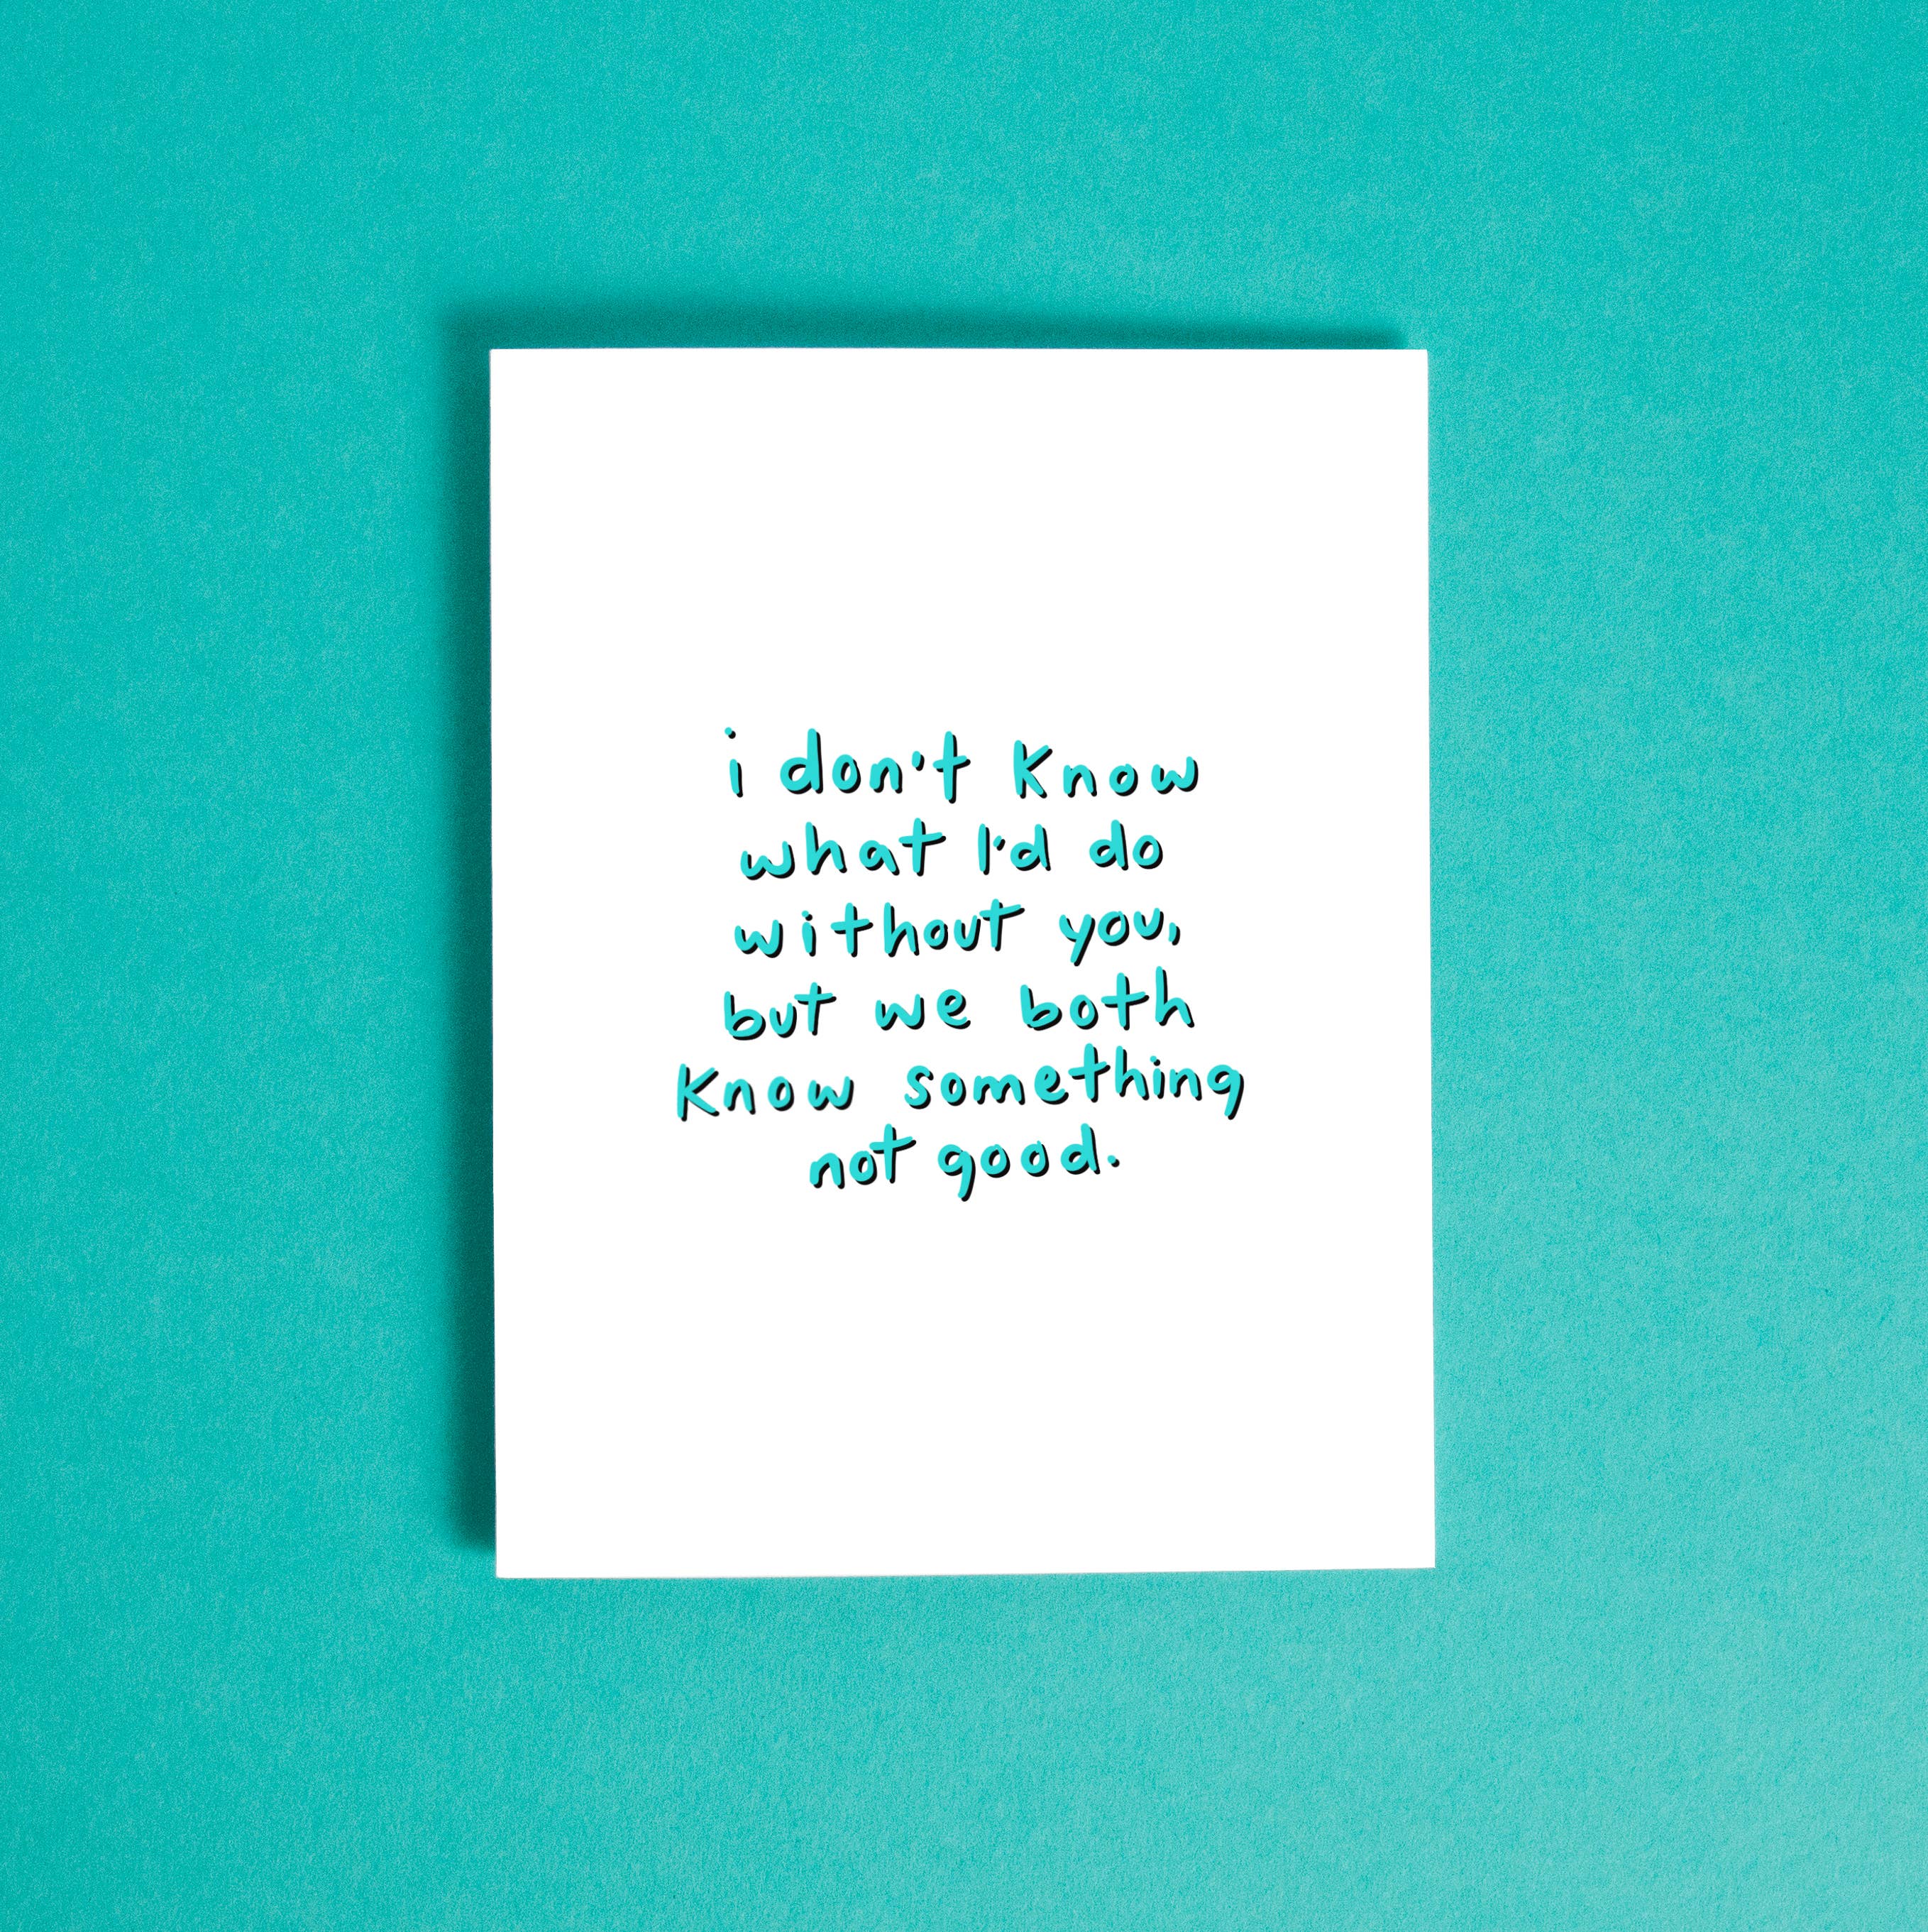 i don't know
what I'd do
without you,
but we both
know something
not good.